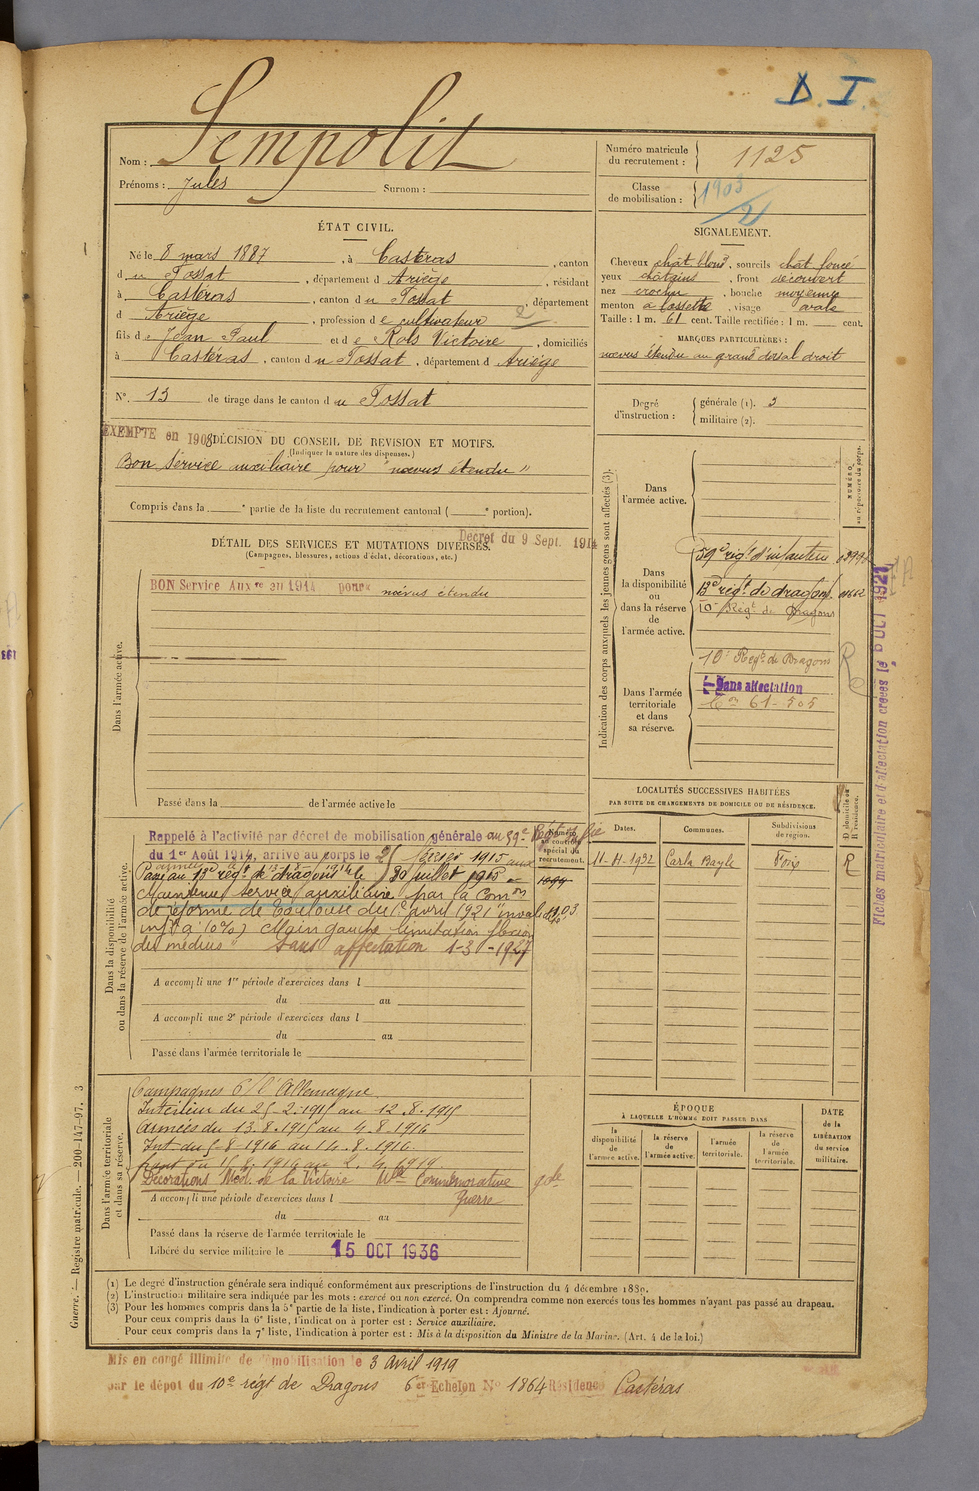 D. I.
Nom : Sempolit
Prénoms : Jules Surnom :
Numéro matricule du recrutement : 1125
Classe de mobilisation : 1903/2
ÉTAT CIVIL.
Né le 8 mars 1887, à Castéras, canton
du Fossat, département d Ariège, résidant
à Castéras, canton du Fossat, département
d Ariège, profession de cultivateur
fils de Jean Paul et de Rols Victoire, domiciliés
à Castéras, canton du Fossat, département d Ariège
N° 13 de tirage dans le canton du Fossat
SIGNALEMENT.
Cheveux chât blond, sourcils chât foncé
yeux châtains, front découvert
nez crochu, bouche moyenne
menton à fossette, visage ovale
Taille : 1 m. 61 cent. Taille rectifiée : 1 m. cent.
MARQUES PARTICULIÈRES :
nœvus étendu au grand dorsal droit
Degré d'instruction : générale (1). 3
militaire (2).
EXEMPTÉ en 1908
DÉCISION DU CONSEIL DE REVISION ET MOTIFS.
(Indiquer la nature des dispenses.)
Bon service auxiliaire pour "nœvus étendu"
Compris dans la ° partie de la liste du recrutement cantonal ( ° portion).
Décret du 9 Sept. 1914
DÉTAIL DES SERVICES ET MUTATIONS DIVERSES.
(Campagnes, blessures, actions d'éclat, décorations, etc.)
Dans l'armée active.
BON Service Auxre en 1914 pour nœvus étendu
Passé dans la de l'armée active le
Indication des corps auxquels les jeunes gens sont affectés (3).
NUMÉRO au répertoire du corps.
Dans l'armée active.
Dans la disponibilité ou dans la réserve de l'armée active.
59e régt d'infanterie
13e régt de dragons
10e Régt de Dragons
Dans l'armée territoriale et dans sa réserve.
10e Régt de Dragons
Sans affectation
61-505
Fiches matriculaire et d'affectation créées le 6 OCT 1927
LOCALITÉS SUCCESSIVES HABITÉES
PAR SUITE DE CHANGEMENTS DE DOMICILE OU DE RÉSIDENCE.
Dates. Communes. Subdivisions de région. D domicile ou R résidence.
11-4-1932 Carla Bayle Foix R
Dans la disponibilité ou dans la réserve de l'armée active.
Rappelé à l'activité par décret de mobilisation générale au 59e Régt
du 1er Août 1914, arrivé au corps le 25 février 1915
Passé au 13e régt de dragons le 30 juillet 1915
Maintenu service auxiliaire par la Comon
de réforme de Toulouse du 1er avril 1921 "inval
inf à 10%) Main gauche limitation flexion
du médius" Sans affectation 1-3-1927
Numéro au contrôle spécial du recrutement.
A accompli une 1re période d'exercices dans l
du au
A accompli une 2e période d'exercices dans l
du au
Passé dans l'armée territoriale le
Dans l'armée territoriale et dans sa réserve.
Campagnes c/ l'Allemagne
Intérieur du 25-2-1915 au 12.8.1915
Armées du 13.8.1915 au 4.8.1916
Int. du 5-8-1916 au 14.8.1916.
Décorations Méd. de la Victoire Mlle Commémorative gde Guerre
A accompli une période d'exercices dans l
du au
Passé dans la réserve de l'armée territoriale le
Libéré du service militaire le 15 OCT 1936
ÉPOQUE
À LAQUELLE L'HOMME DOIT PASSER DANS
la disponibilité de l'armée active.
la réserve de l'armée active.
l'armée territoriale.
la réserve de l'armée territoriale.
DATE de la LIBÉRATION du service militaire.
(1) Le degré d'instruction générale sera indiqué conformément aux prescriptions de l'instruction du 4 décembre 1889.
(2) L'instruction militaire sera indiquée par les mots : exercé ou non exercé. On comprendra comme non exercés tous les hommes n'ayant pas passé au drapeau.
(3) Pour les hommes compris dans la 5e partie de la liste, l'indication à porter est : Ajourné.
Pour ceux compris dans la 6e liste, l'indication à porter est : Service auxiliaire.
Pour ceux compris dans la 7e liste, l'indication à porter est : Mis à la disposition du Ministre de la Marine. (Art. 4 de la loi.)
Guerre. — Registre matricule. — 200-147-97. 3
Mis en congé illimité de démobilisation le 3 avril 1919
par le dépôt du 10e régt de Dragons 6e Echelon N° 1864 Résidence Castéras